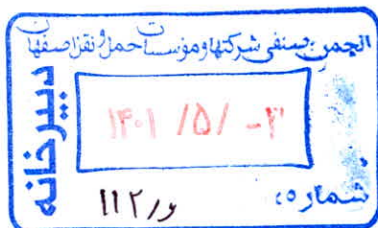 انجمن صنفی شرکتها و مؤسسات حمل و نقل اصفهان
دبیرخانه
۱۴۰۱ /۵/ -۳
شماره:
۱۱۲/و